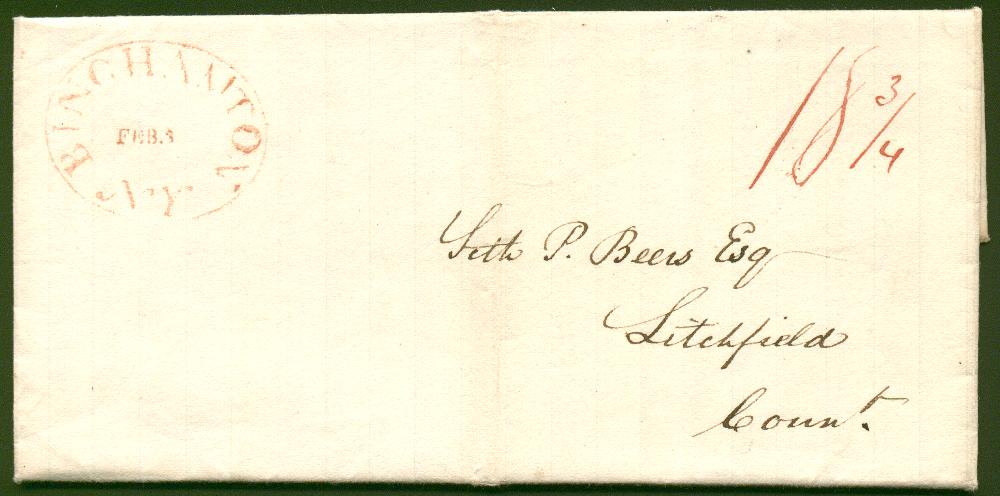 BINGHAMTON
FEB.3
N.Y.
18 3/4
Seth P. Beers Esq
Litchfield
Connt.